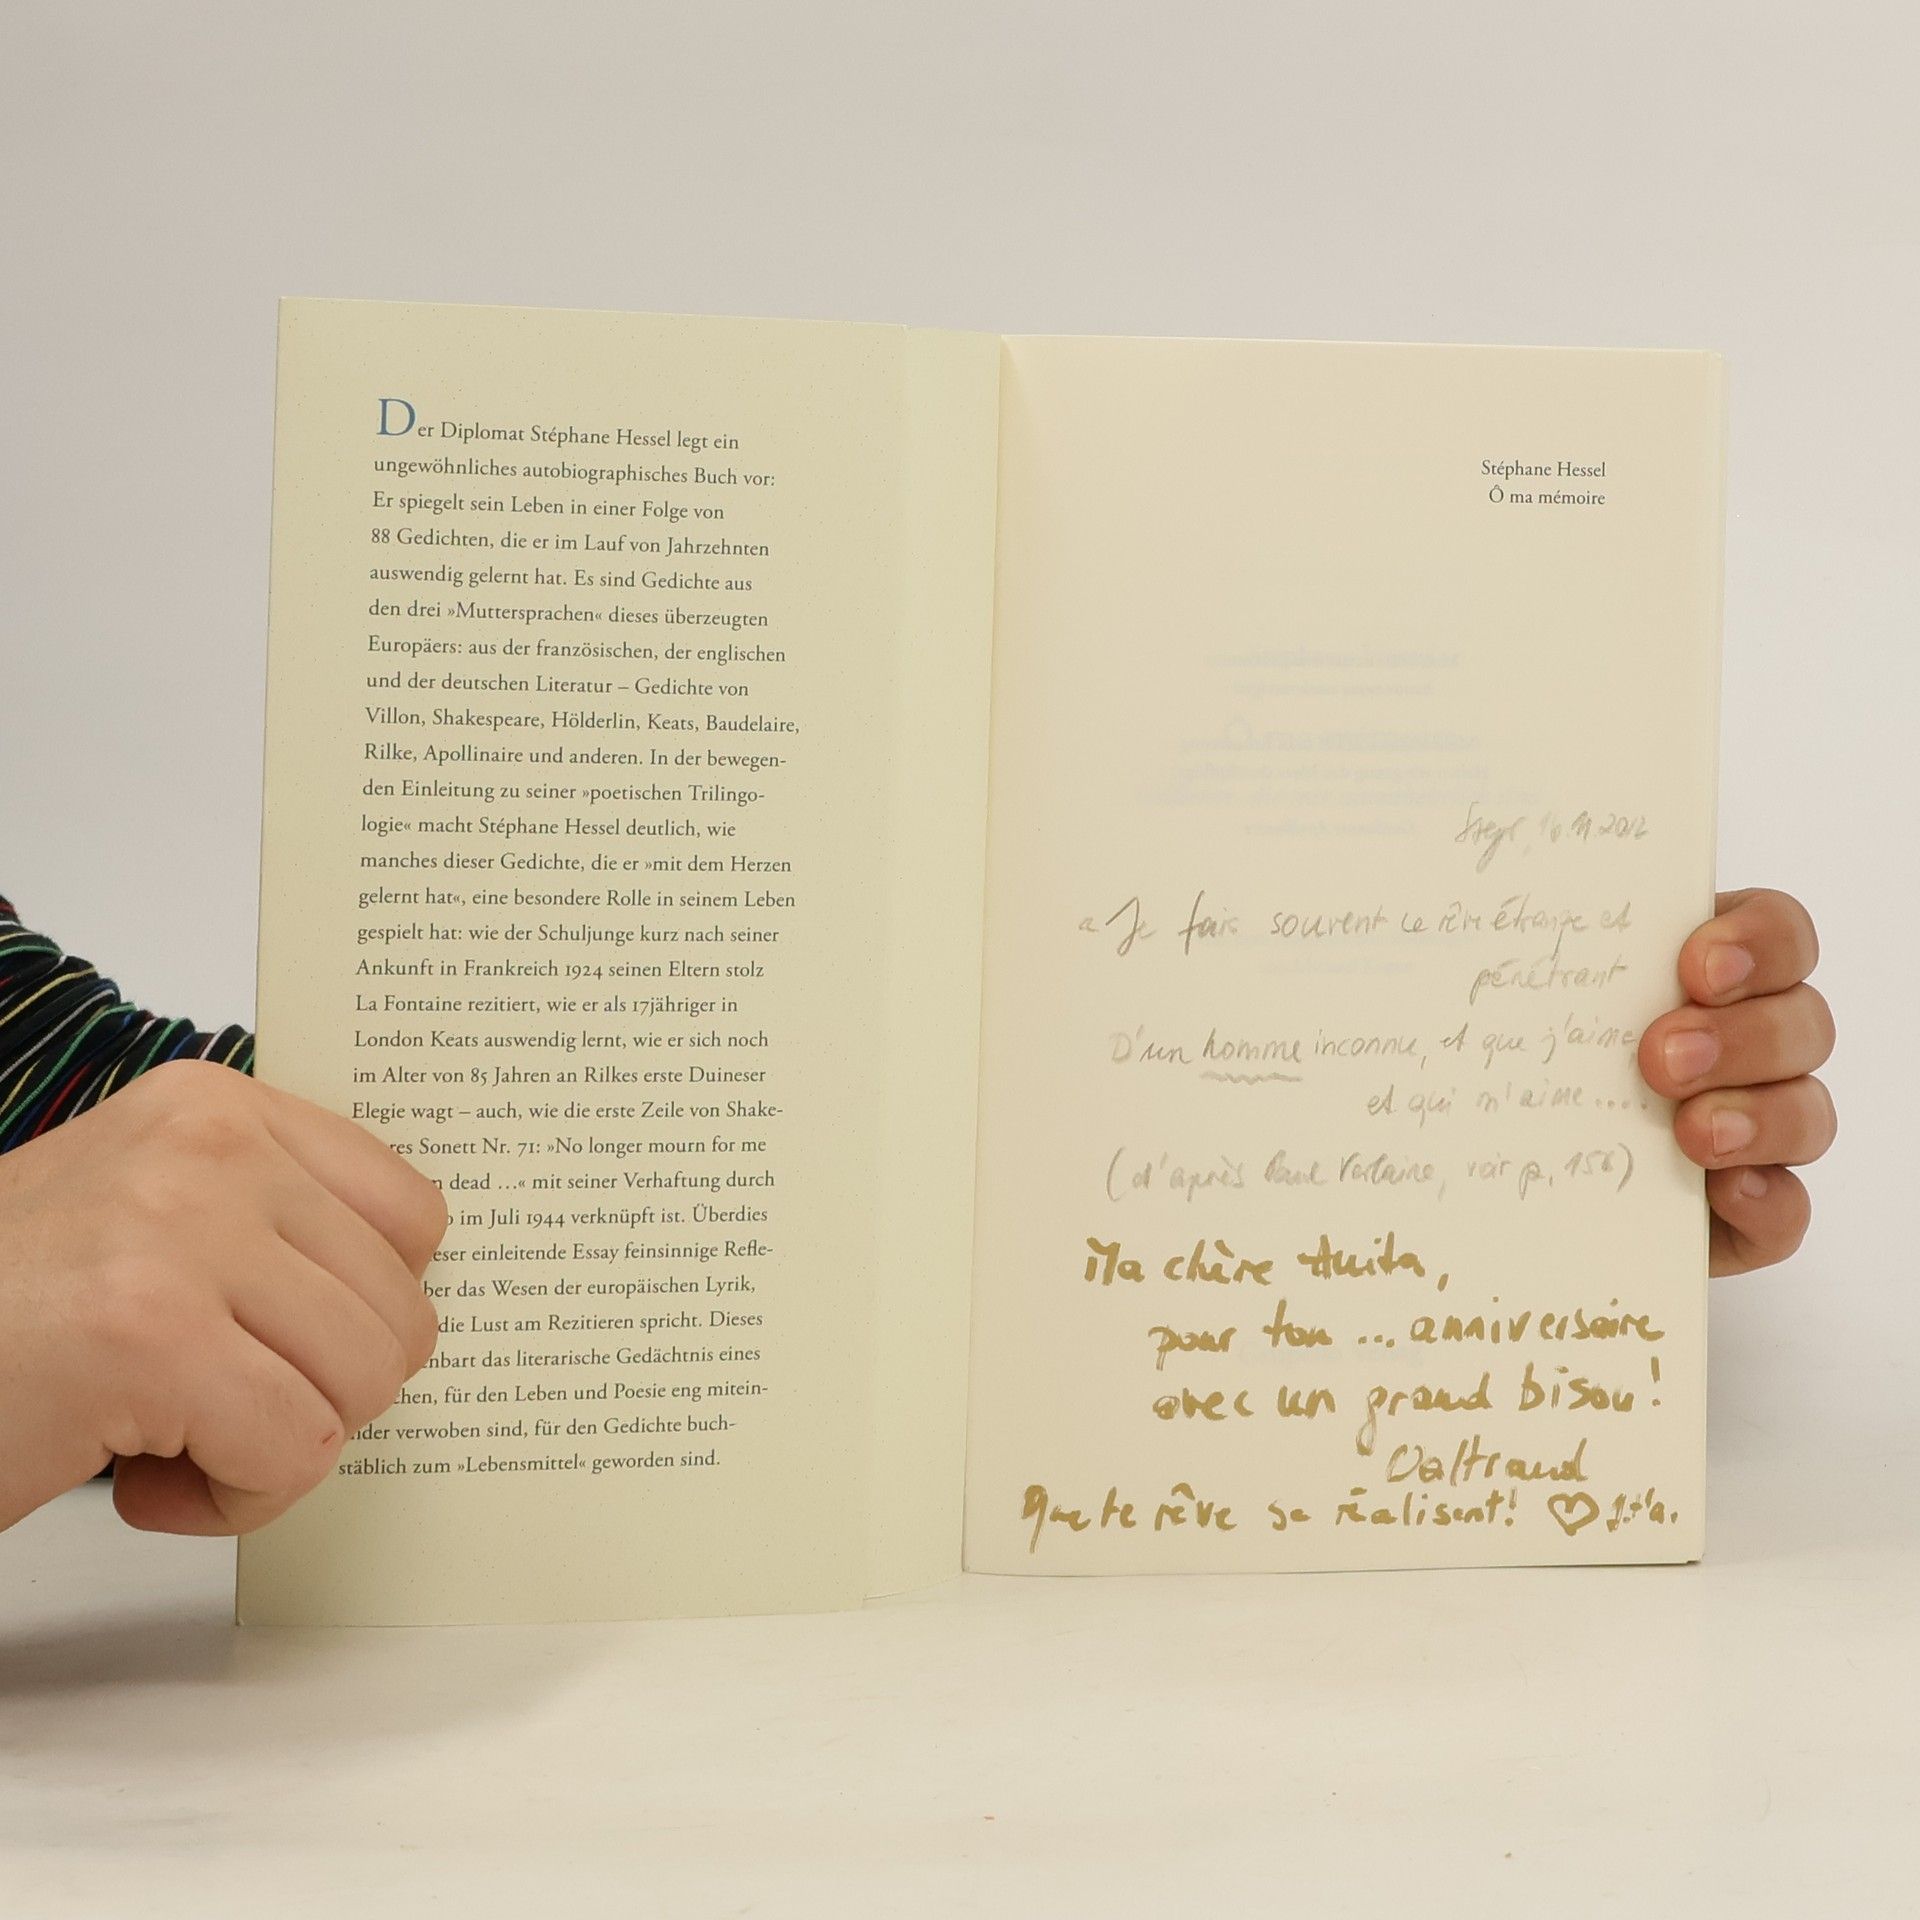 Der Diplomat Stéphane Hessel legt ein
ungewöhnliches autobiographisches Buch vor:
Er spiegelt sein Leben in einer Folge von
88 Gedichten, die er im Lauf von Jahrzehnten
auswendig gelernt hat. Es sind Gedichte aus
den drei »Muttersprachen« dieses überzeugten
Europäers: aus der französischen, der englischen
und der deutschen Literatur – Gedichte von
Villon, Shakespeare, Hölderlin, Keats, Baudelaire,
Rilke, Apollinaire und anderen. In der bewegen-
den Einleitung zu seiner »poetischen Trilingo-
logie« macht Stéphane Hessel deutlich, wie
manches dieser Gedichte, die er »mit dem Herzen
gelernt hat«, eine besondere Rolle in seinem Leben
gespielt hat: wie der Schuljunge kurz nach seiner
Ankunft in Frankreich 1924 seinen Eltern stolz
La Fontaine rezitiert, wie er als 17jähriger in
London Keats auswendig lernt, wie er sich noch
im Alter von 85 Jahren an Rilkes erste Duineser
Elegie wagt – auch, wie die erste Zeile von Shake-
res Sonett Nr. 71: »No longer mourn for me
dead ...« mit seiner Verhaftung durch
im Juli 1944 verknüpft ist. Überdies
eser einleitende Essay feinsinnige Refle-
ber das Wesen der europäischen Lyrik,
die Lust am Rezitieren spricht. Dieses
nbart das literarische Gedächtnis eines
chen, für den Leben und Poesie eng mitein-
nder verwoben sind, für den Gedichte buch-
stäblich zum »Lebensmittel« geworden sind.
Stéphane Hessel
Ô ma mémoire
Steyr, 16.11.2012
Je fais souvent ce rêve étrange et
pénétrant
D'un homme inconnu, et que j'aime,
et qui m'aime....
(d'après Paul Verlaine, voir p. 156)
Ma chère Anita,
pour ton ... anniversaire
avec un grand bisou!
Waltraud
Que te rêve se réalisent!